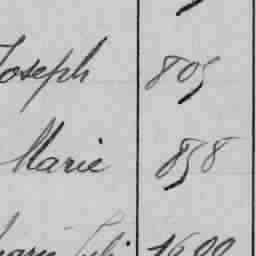 Joseph 805
Marie 858
1600